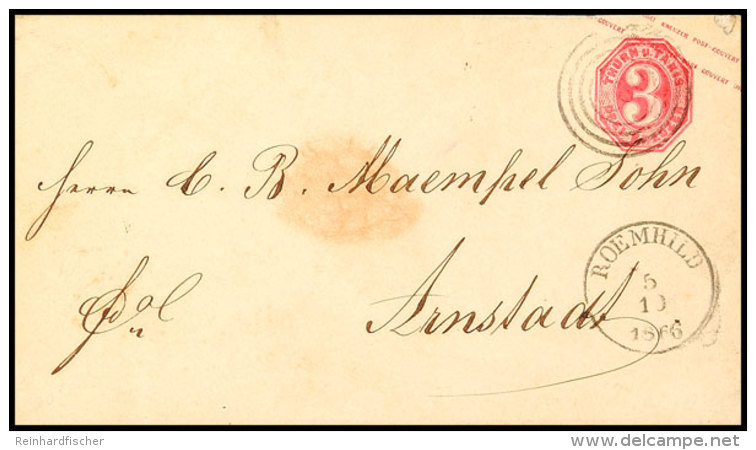 KREUZER POST-COUVERT
COUVERT
THURN U. TAXIS
3
Herrn C. B. Maempel Sohn
ROEMHILD
5
10
1866
Arnstadt
Reinhardfischer
www.delcampe.net